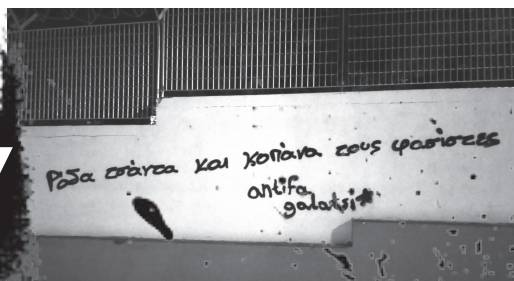 Ρόδα τσάντα και κοπάνα τους φασίστες
antifa
galatsi*